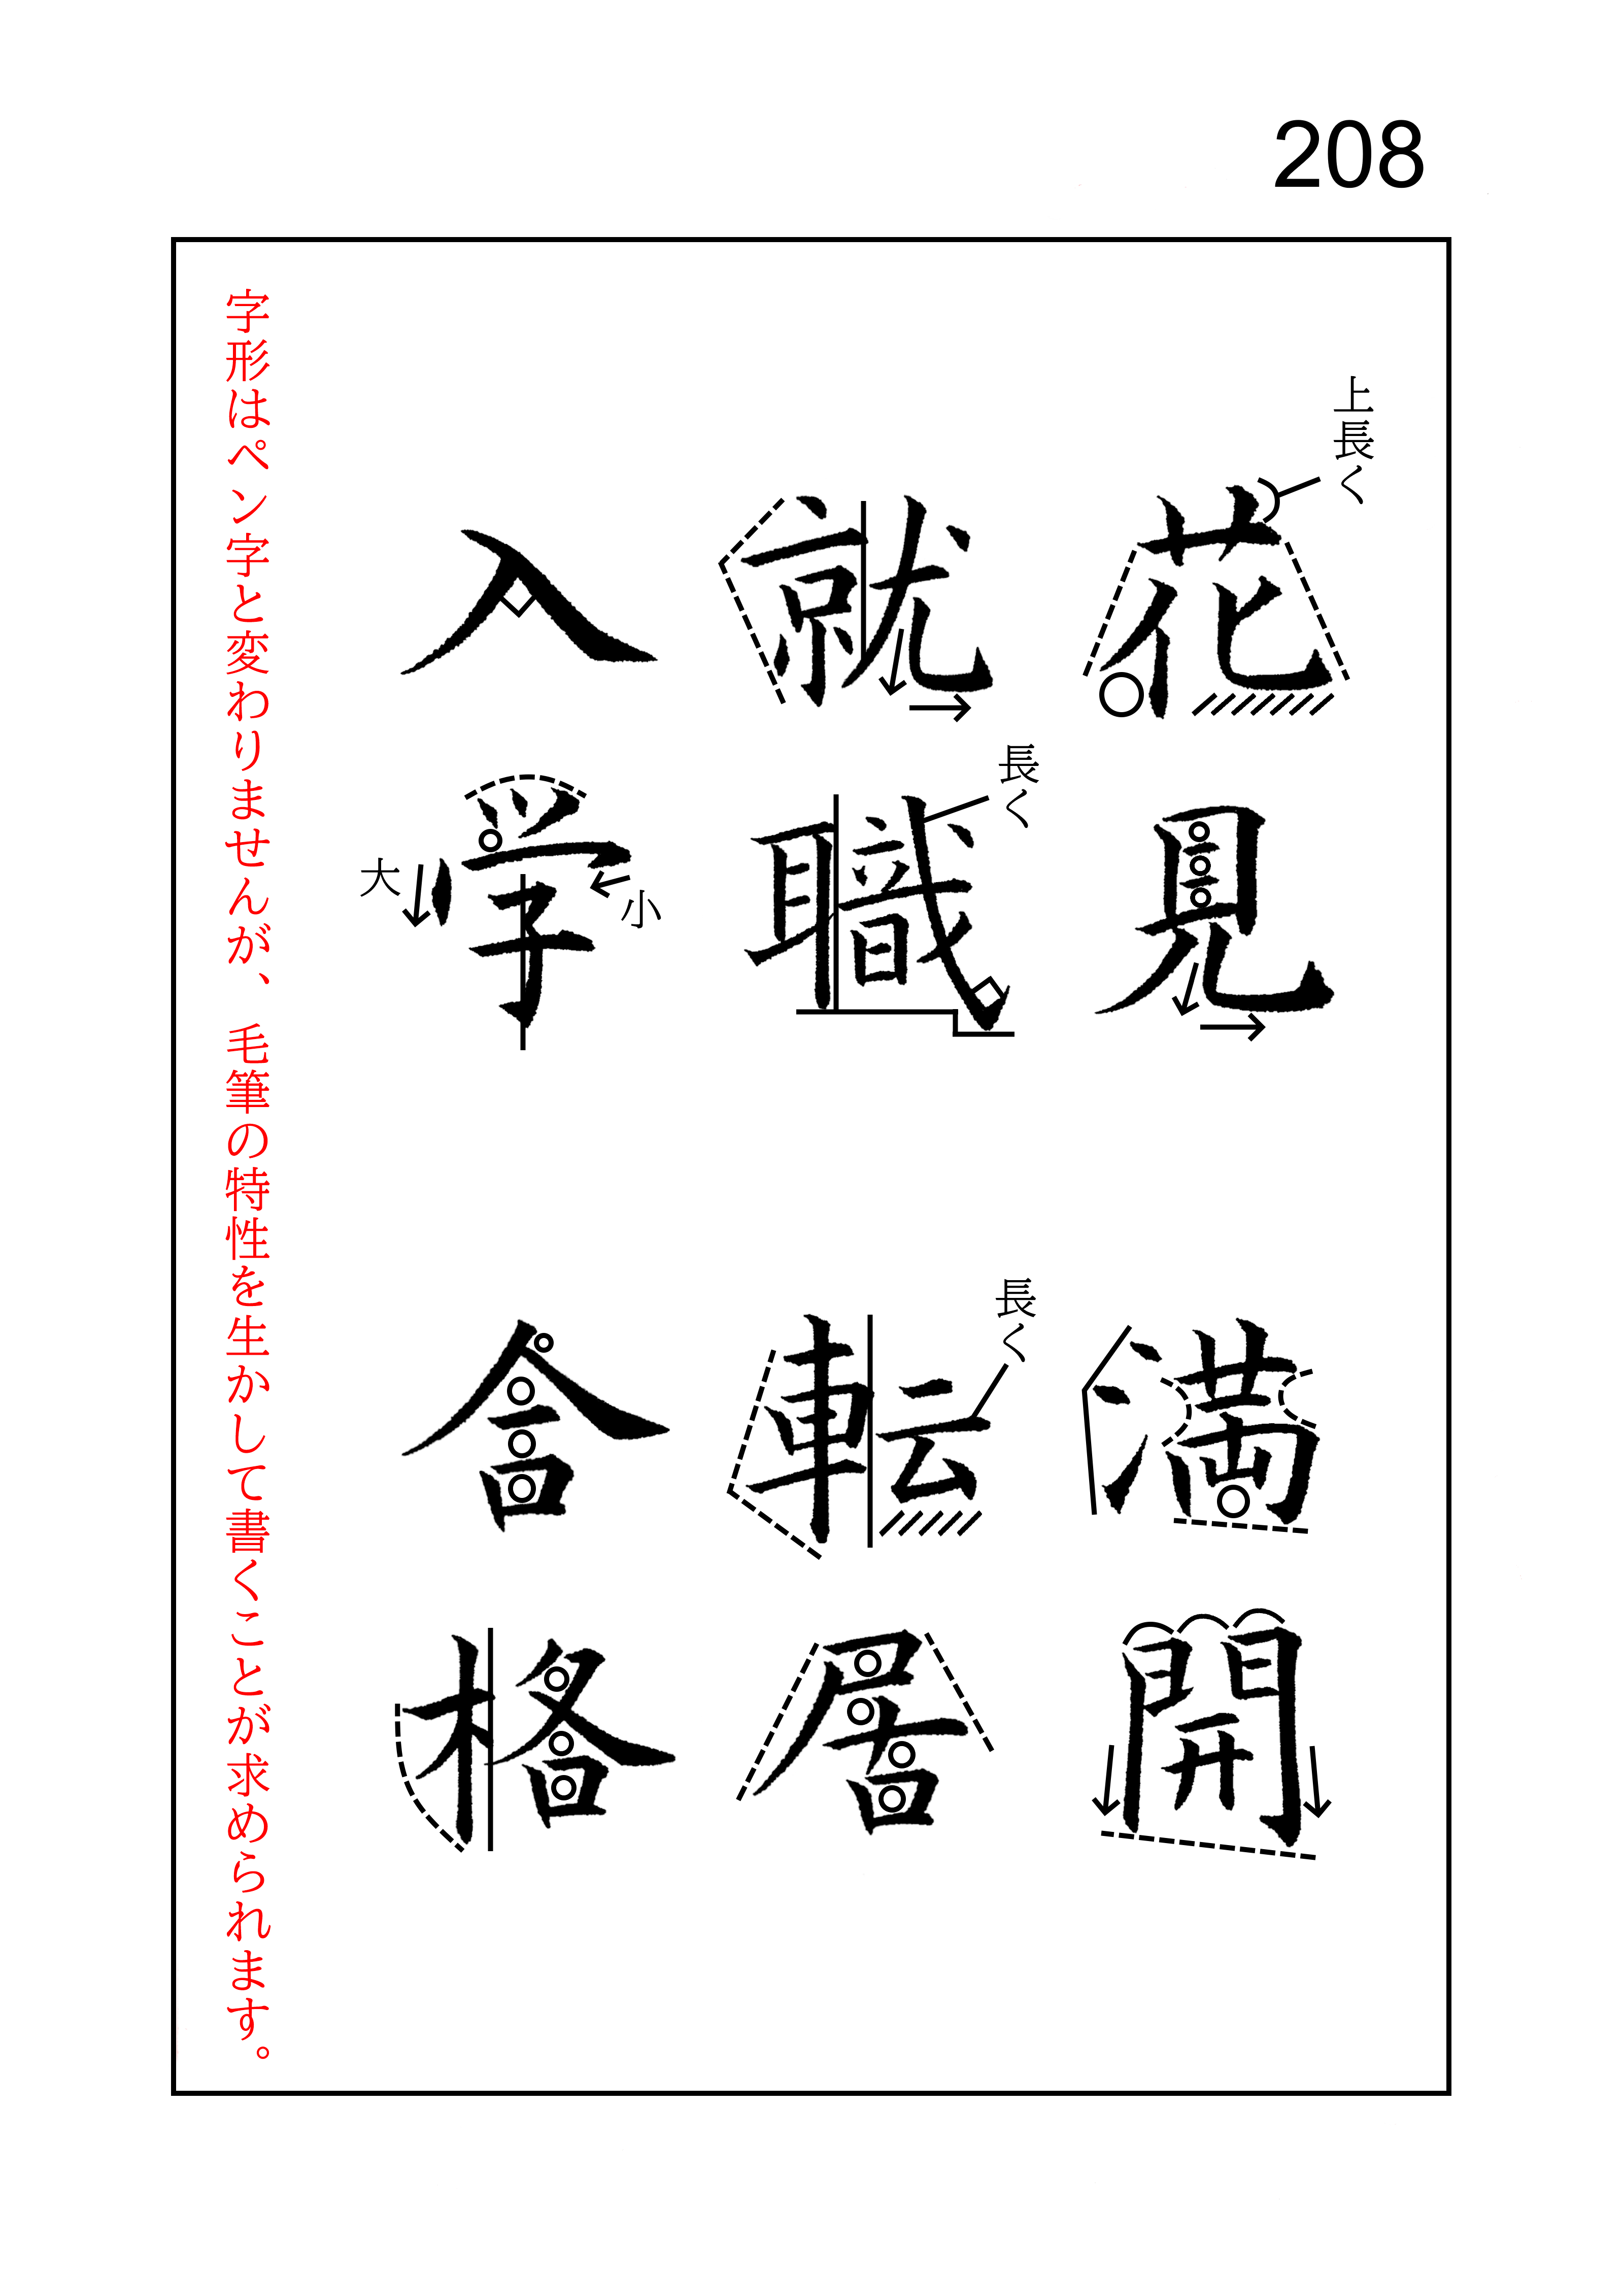 208
上長く
花見
満開
長く
就職
長く
転居
入学
大
小
合格
字形はペン字と変わりませんが、毛筆の特性を生かして書くことが求められます。